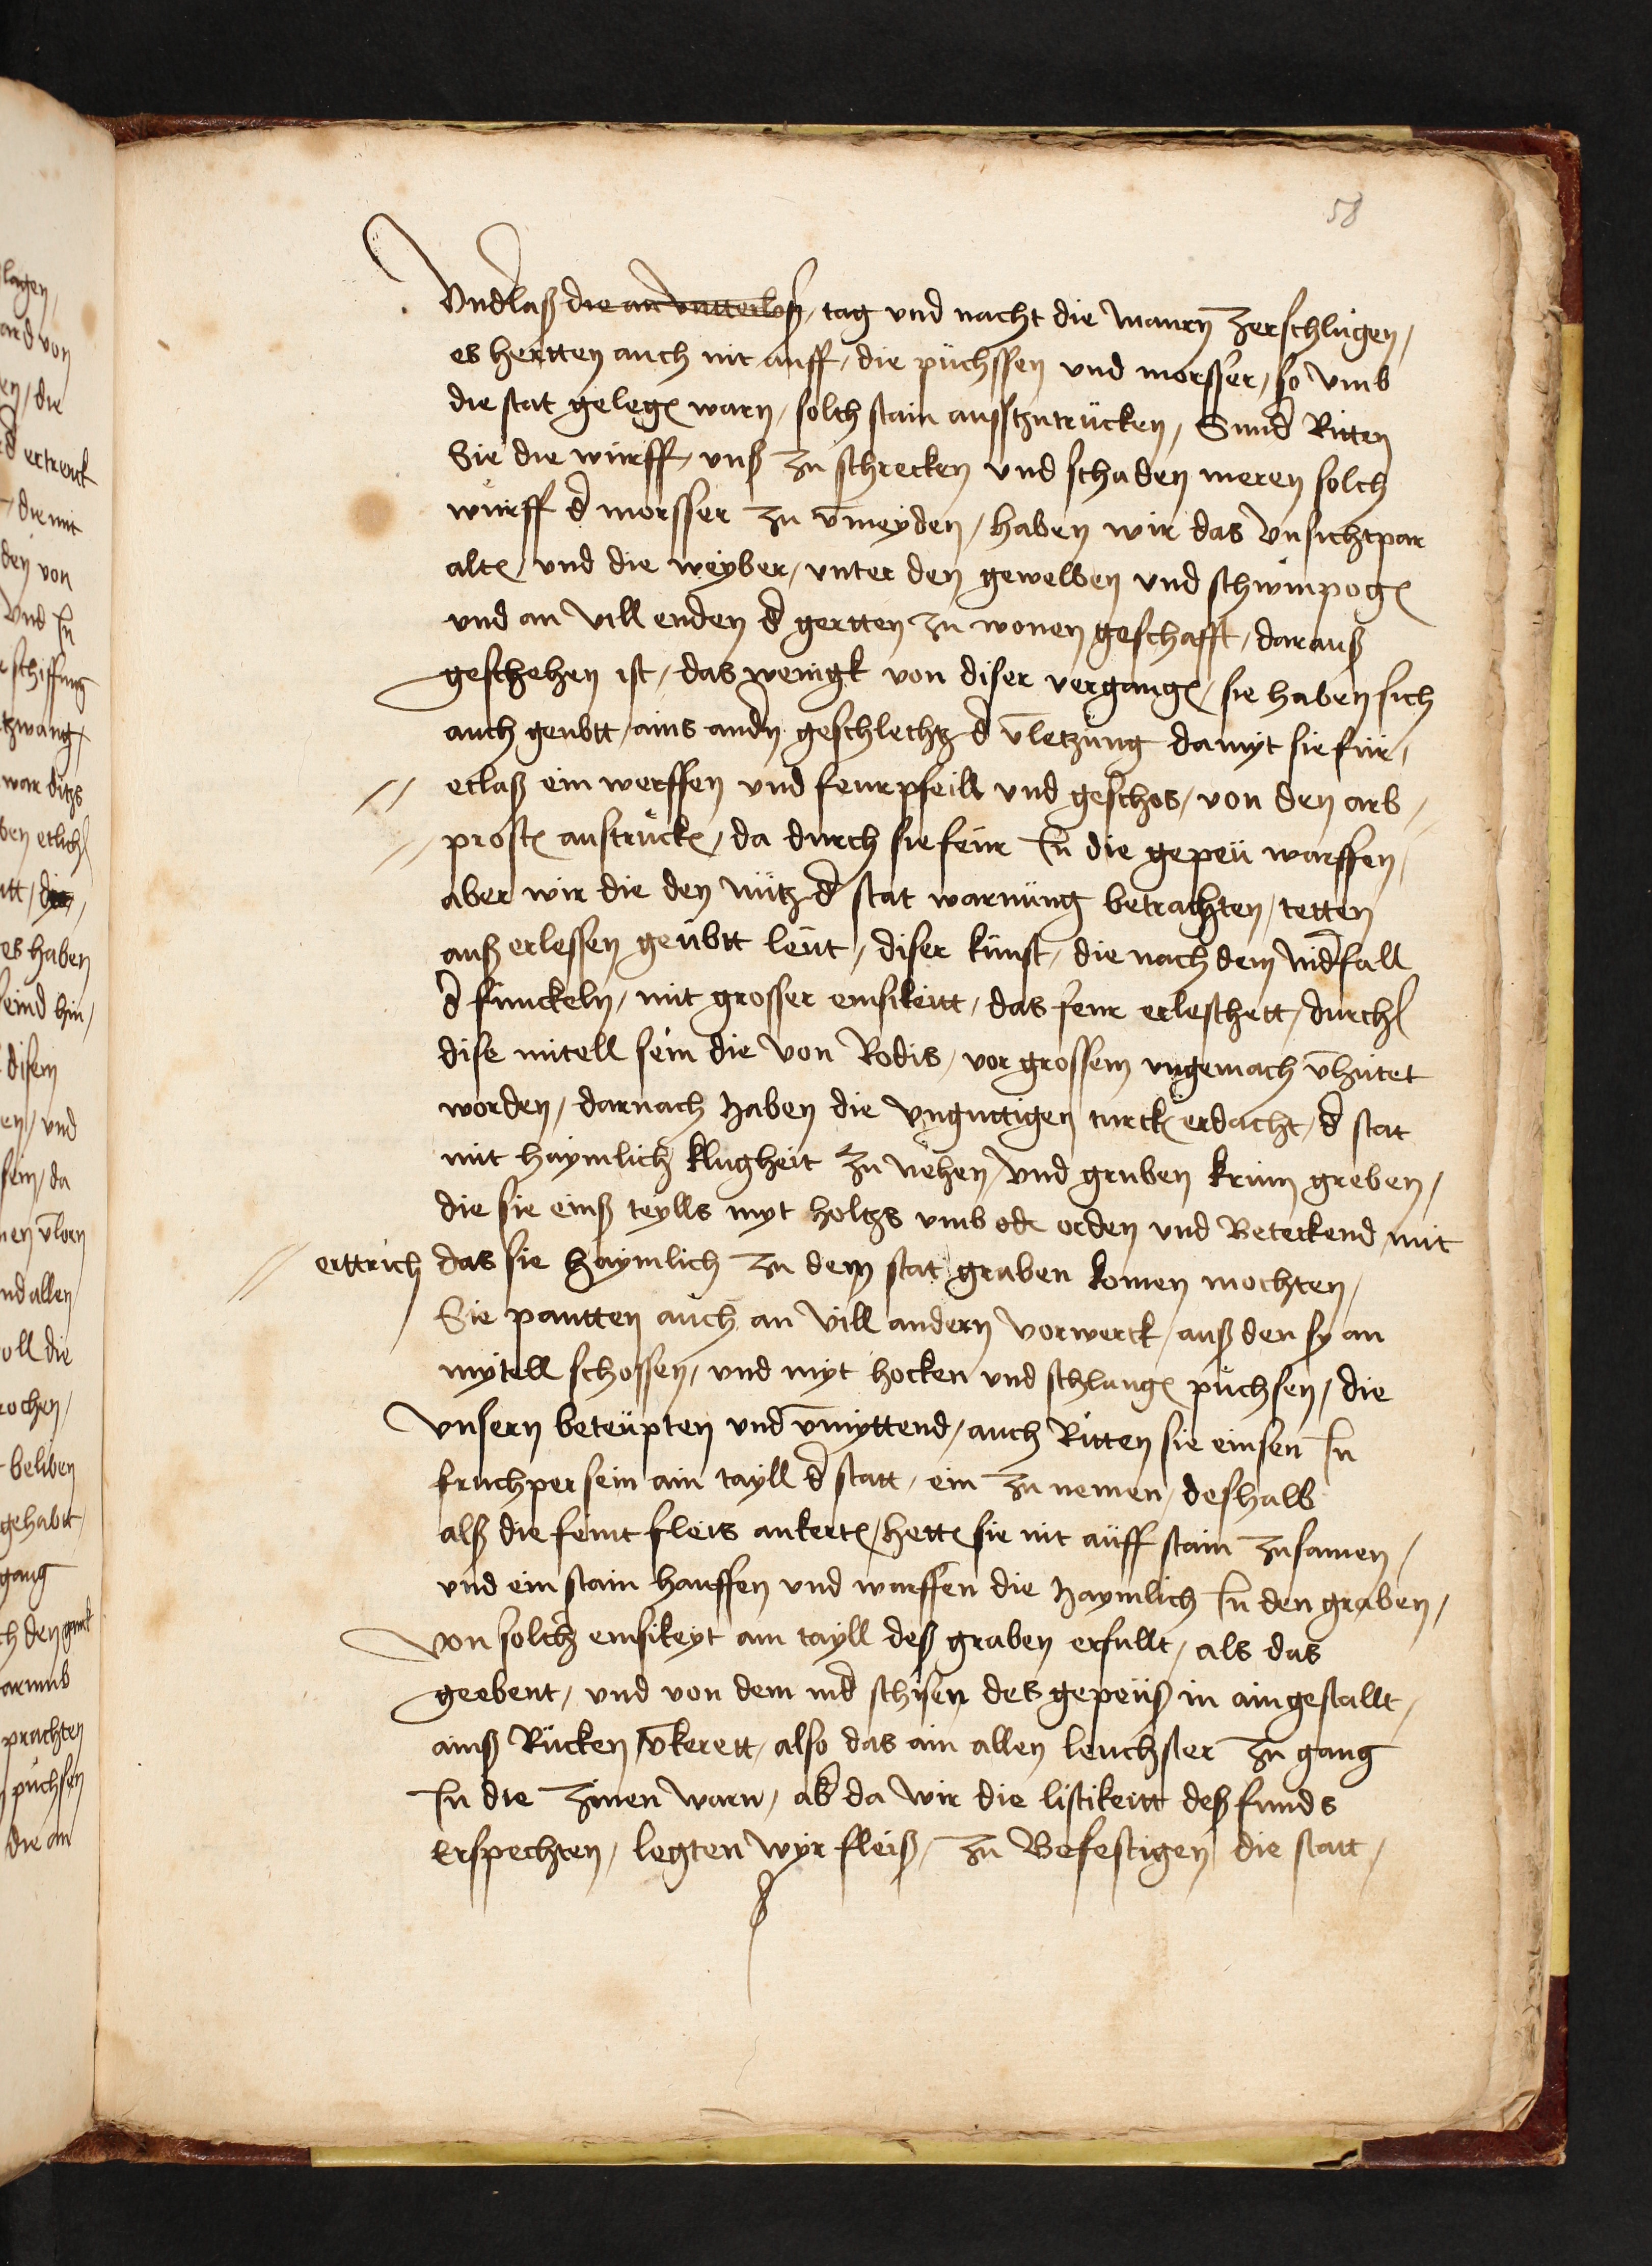 58
Vnderlaß die an vntterlaß / tag vnd nacht die maurn zerschlugen /
es hertten auch nit auff / die püchssen vnd morsser / so vmb
die stat gelegen warn / solch stain ausszutrücken / Sunder Ritten
Sie die würff / vnß zu schrecken vnd schaden meren solch
würff d morsser zu v̄meyden / haben wir das vnsichtpar
alter / vnd die weyber / vnter den gewelben vnd schwinpogen
vnd an vill enden d gertten zu wonen geschafft / darauß
geschehen ist / das wenigk von diser vergangen / sie haben sich
auch geubtt / ains andern geschlechtz d v̄letzung damyt sie für /
etlaß ein werffen vnd feurpfeill vnd geschos / von den arb //
// prosten austrucken / da durch sie feür In die gepeü warffen /
aber wir die den nütz d stat warnüng betrachten / tetten
auß erlessen geübtt leüt / diser künst / die nach dem niderfall
d funckeln / mit grosser emsikeitt / das feur erleschett / durch
dise mitell sein die von Rodis / vor grossem vngemach v̄hütet
worden / darnach haben die vnguttigen turcken erdacht / d stat
mit haymlich klugheit zu nehen / vnd gruben krum greben /
die sie einß teylls myt holtzs vmb ode orden vnd Beteckend mit
// erttrich das sie haymlich zu dem stat graben komen mochten /
Sie pautten auch an vill andern vorwerck / auß den sy an
mytell schossen / vnd myt hocken vnd schlangen püchsen / die
vnsern beteüpten vnd v̄myttend / auch Ritten sie einsen In
fruchper sein ain tayll d statt / ein zu nemen / deshalb
alß die feint fleis ankerten / hetten sie nit aüff stain zusamen /
vnd ein stain hauffen vnd warffen die haymlich In den graben /
von solch emsikeyt ain tayll deß graben erfullt / als das
geebent / vnd von dem nid schisen des gepeüß in ain gestallt /
ainß Rücken v̄kerett / also das ain allen leuchster zu gang
In die zinen warn / aber da wir die listikeitt deß funds
Erspechten / legten wyr fleiß / zu Befestigen die statt /